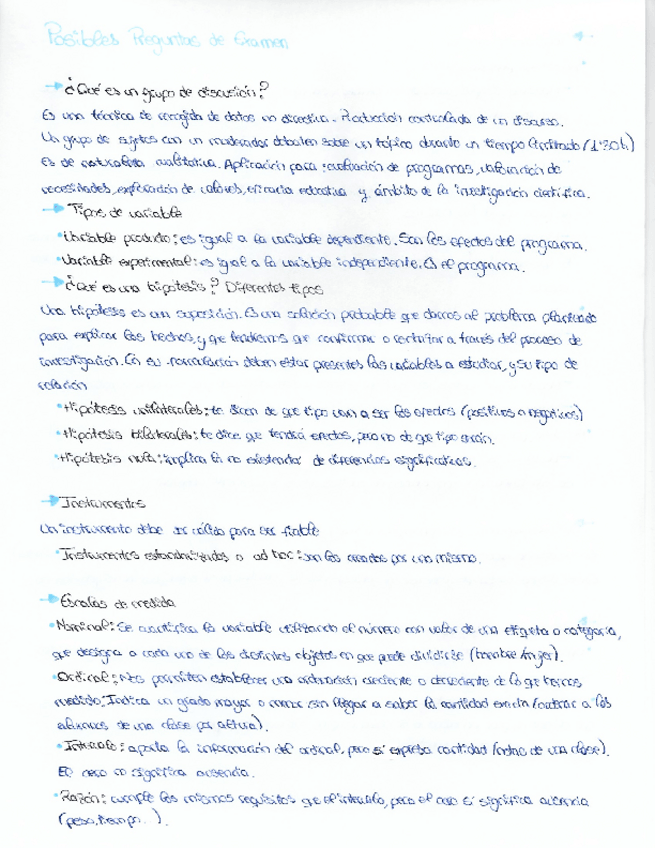 Posibles Preguntas de Examen
1-
¿Qué es un grupo de discusión?
Es una técnica de recogida de datos no directiva. Producción controlada de un discurso.
Un grupo de sujetos con un moderador debaten sobre un tópico durante un tiempo limitado (1'30h)
es de naturaleza cualitativa. Aplicación para: evaluación de programas, valoración de
necesidades, exploración de valores, eficacia educativa y ámbito de la investigación científica.
Tipos de variable
Variable producto: es igual a la variable dependiente. Son los efectos del programa.
Variable experimental: es igual a la variable independiente. Es el programa.
¿Qué es una hipótesis? Diferentes tipos
Una hipótesis es una suposición. Es una solución probable qe damos al problema planteado
para explicar los hechos, y qe tendremos qe confirmar o rectificar a través del proceso de
investigación. En su formulación deben estar presentes las variables a estudiar, y su tipo de
relación
Hipótesis unilaterales: te dicen de qe tipo van a ser los efectos (positivos o negativos)
Hipótesis bilaterales: te dice qe tendrá efectos, pero no de qe tipo serán.
Hipótesis nula: implica la no existencia de diferencias significativas.
Instrumentos
Un instrumento debe ser válido para ser fiable
Instrumentos estandarizados o ad hoc: son los creados por uno mismo.
Escalas de medida
Nominal: Se cuantifica la variable utilizando el número con valor de una etiqueta o categoría,
qe designa a cada uno de los distintos objetos en qe puede dividirse (hombre/mujer).
Ordinal: Nos permiten establecer una ordenación creciente o decreciente de lo qe hemos
medido. Indica un grado mayor o menor sin llegar a saber la cantidad exacta (ordenar a los
alumnos de una clase por altura).
Intervalo: aporta la información del ordinal, pero sí expresa cantidad (notas de una clase).
El cero no significa ausencia.
Razón: cumple los mismos requisitos qe el intervalo, pero el cero sí significa ausencia
(peso, tiempo...).